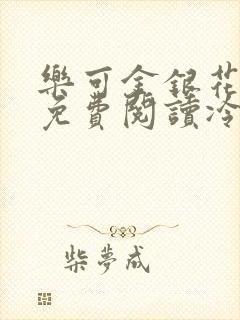 樂可金銀花
免費閱讀冷
柴夢成